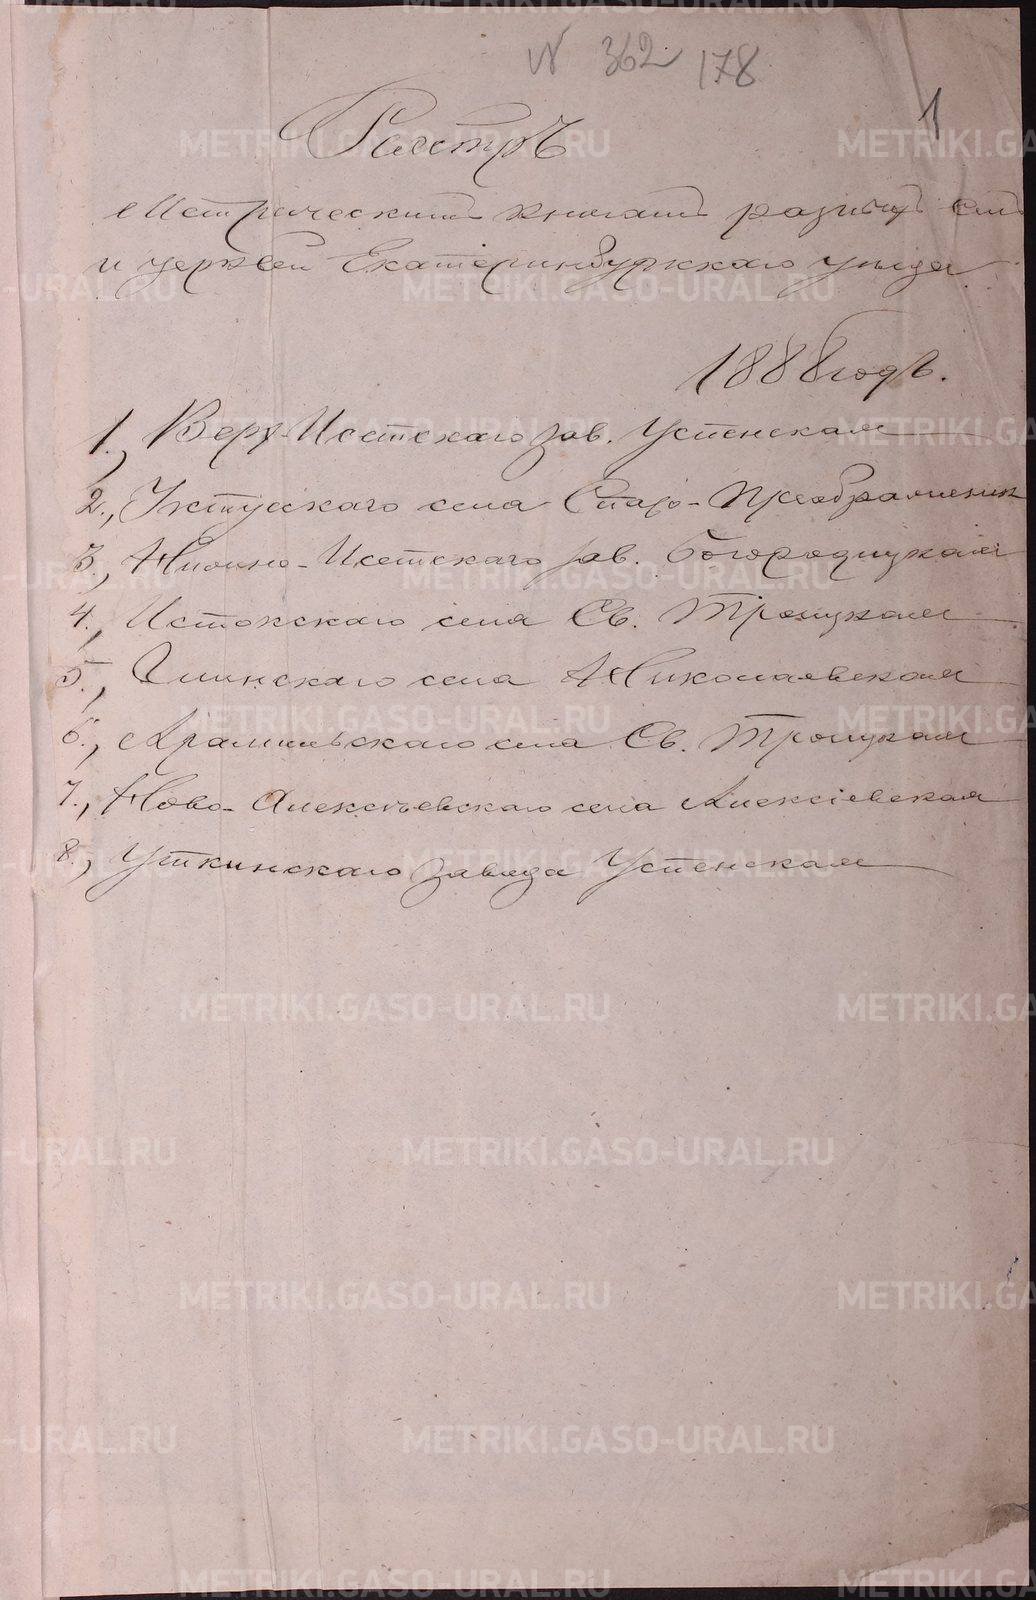 № 362 178
1
Реестръ
Метрическимъ книгамъ разныхъ селъ
и церквей Екатеринбургскаго уѣзда
1888 годъ.
1., Верх-Исетскаго зав. Успенская
2., Уктусскаго села Спасо-Преображенск
3., Нижне-Исетскаго зав. Богородицкая
4., Истокскаго села Св. Троицкая
5., села Николаевская
6., Арамильскаго села Св. Троицкая
7., Ново-Алексѣевскаго села Алексіевская
8., Уткинскаго завода Успенская
METRIKI.GASO-URAL.RU